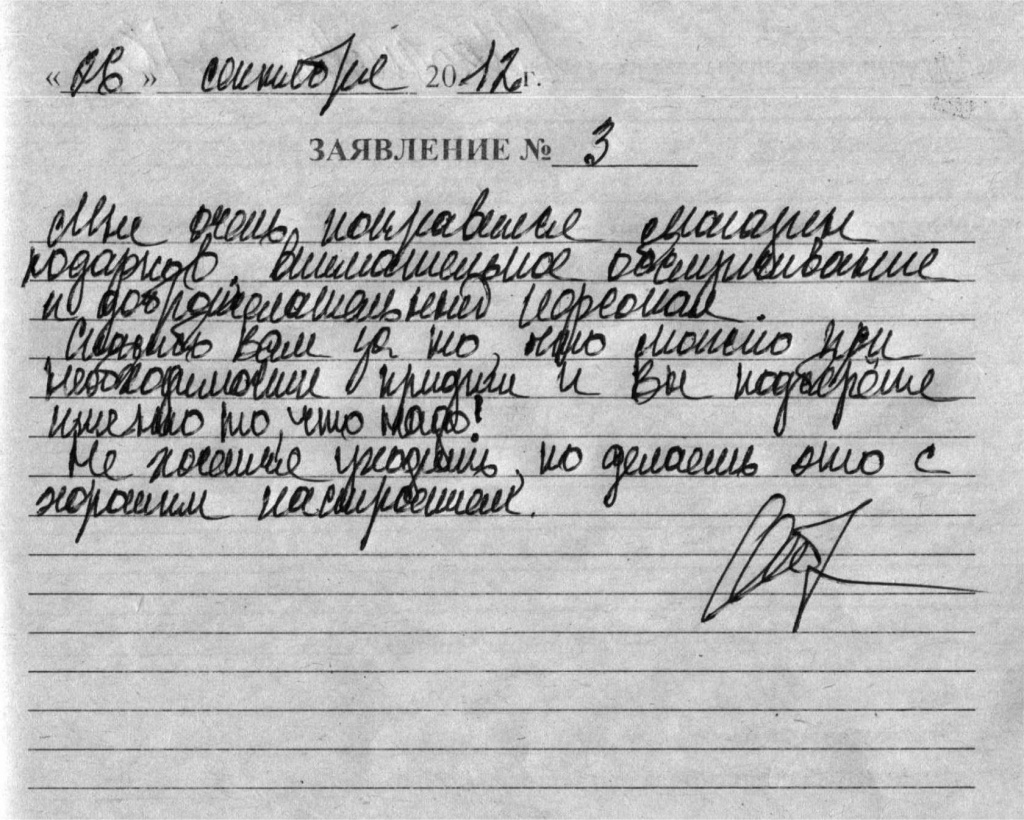 «06» сентября 2012г.
ЗАЯВЛЕНИЕ № 3
Мне очень понравился магазин
подарков, внимательное обслуживание
и доброжелательный персонал.
Спасибо вам за то, что можно при
необходимости придти и Вы подберёте
именно то, что надо!
Не хочется уходить, но делаешь это с
хорошим настроением.